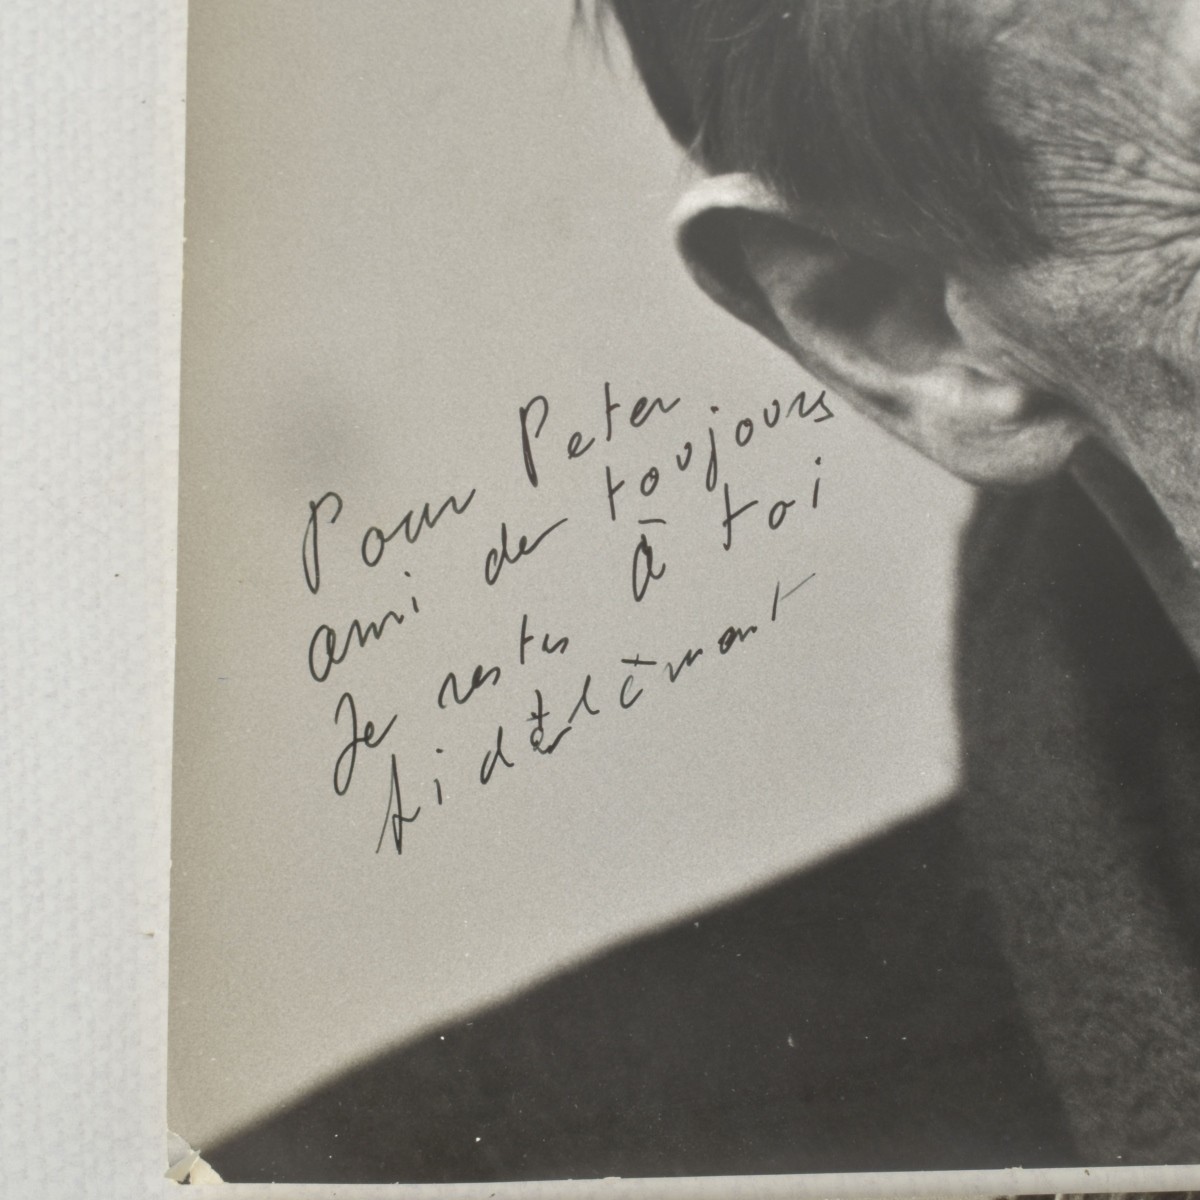 Pour Peter
ami de toujours
Je reste à toi
fidèlèment